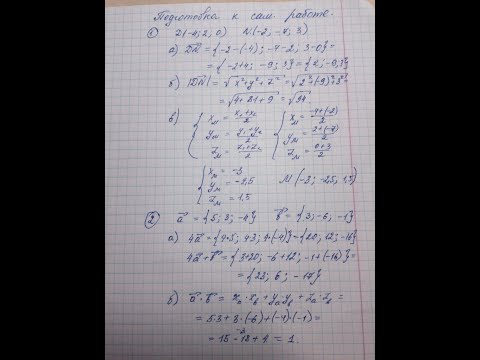 Подготовка к сам. работе.
① D(-4; 2; 0) N(-2; -7; 3)
а) DN = {-2-(-4); -7-2; 3-0} =
= {-2+4; -9; 3} = {2; -9; 3}
б) |DN| = √x²+y²+z² = √2²+(-9)²+3² =
= √4+81+9 = √94
в) { xм = x₁+x₂/2 { xм = -4+(-2)/2
yм = y₁+y₂/2 yм = 2+(-7)/2
zм = z₁+z₂/2 zм = 0+3/2
{ xм = -3
yм = -2,5 M (-3; -2,5; 1,5)
zм = 1,5
② a = {5; 3; -4} b = {3; -6; -1}
а) 4a = {4·5; 4·3; 4·(-4)} = {20; 12; -16}
4a + b = {3+20; -6+12; -1+(-16)} =
= {23; 6; -17}
б) a · b = xa · xb + ya · yb + za · zb =
= 5·3 + 3·(-6) + (-4)·(-1) =
= 15 - 18 + 4 = 1.